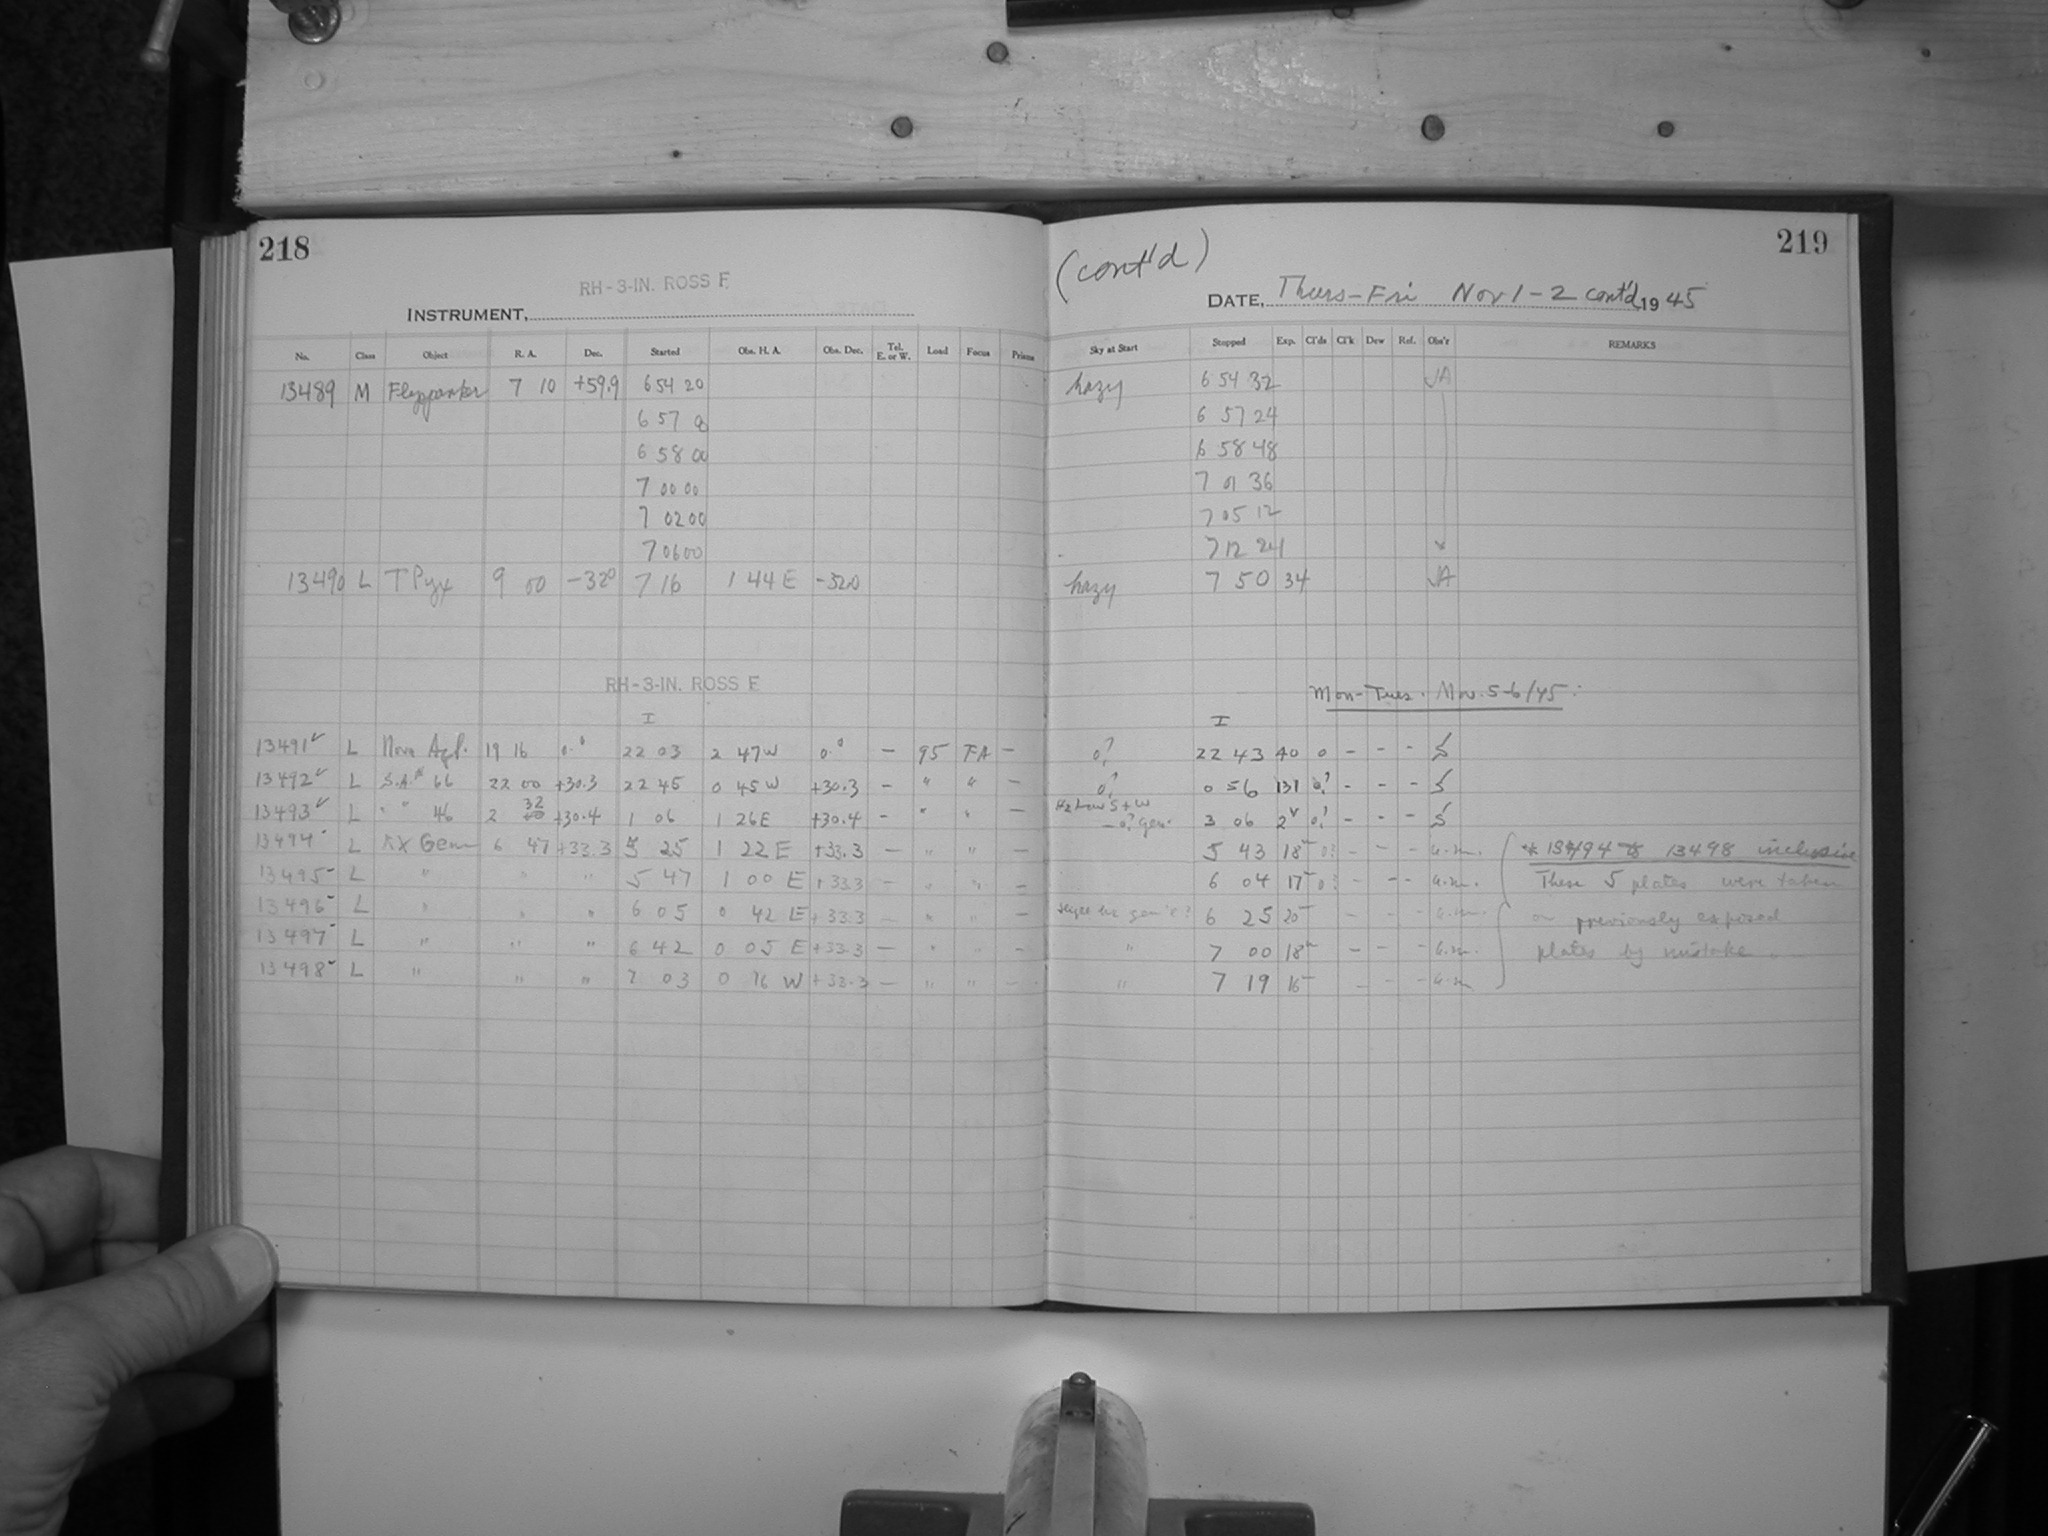 218
RH-3-IN. ROSS F
INSTRUMENT,
No. Class Object R. A. Dec. Started Obs. H. A. Obs. Dec. Tel. E. or W. Load Focus Prisms
13489 M 7 10 +59.9 6 54 20
6 57
6 58 00
7 00 00
7 02 00
7 06 00
13490 L T Pyx 9 00 -32° 7 16 1 44 E
RH-3-IN. ROSS F
I
13491 L Nova Aql. 19 16 0.° 22 03 2 47 W 0.° - 95 FA -
13492 L S.A. 66 22 00 +30.3 22 45 0 45 W +30.3 - " " -
13493 L " " 46 2 32 +30.4 1 06 1 26 E +30.4 - " " -
13494 L Gem 6 47 +33.3 5 25 1 22 E +33.3 - " " -
13495 L " " " 5 47 1 00 E +33.3 - " " -
13496 L " " " 6 05 0 42 E +33.3 - " " -
13497 L " " " 6 42 0 05 E +33.3 - " " -
13498 L " " " 7 03 0 16 W +33.3 - " " -
219
(cont'd)
DATE, Thurs-Fri Nov 1-2 cont'd, 1945
Sky at Start Stopped Exp. Cl'ds Cl'k Dew Ref. Obs'r REMARKS
hazy 6 54 32 JA
6 57 24
6 58 48
7 01 36
7 05 12
7 12 24
hazy 7 50 34 JA
Mon-Tues. Nov. 5-6/45:
I
0? 22 43 40 0 - - - S
0? 0 56 131 0? - - - S
Hz Low S + W
- 0? gen. 3 06 0? - - - S
5 43 18 0? - - - * 13494 to 13498 inclusive
6 04 17 0? - - - These 5 plates were taken
6 25 20 - - - on previously exposed
" 7 00 18 - - - plates by mistake
" 7 19 16 - - -